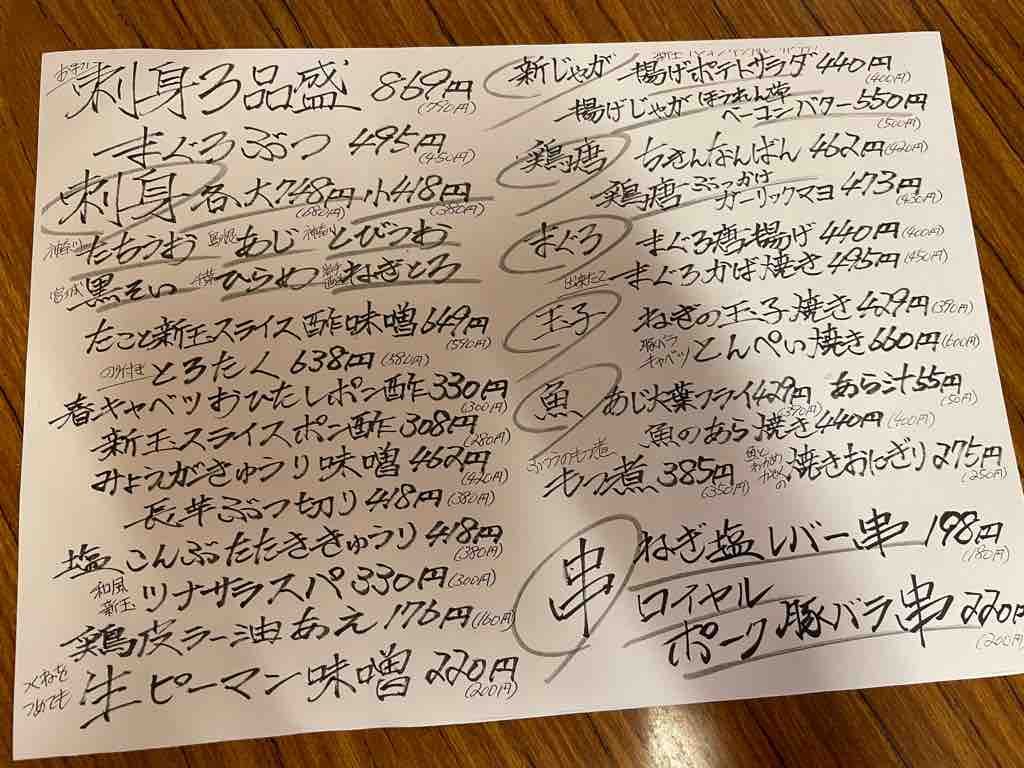 刺身3品盛 869円 (790円)
まぐろぶつ 495円 (450円)
刺身 各 大748円 (680円) 小418円 (380円)
神奈川 たちうお 島根 あじ 神奈川 とびうお
宮城 黒そい 千葉 ひらめ ねぎとろ
たこと新玉スライス酢味噌 649円 (590円)
のり付き とろたく 638円 (580円)
春キャベツおひたしポン酢 330円 (300円)
新玉スライスポン酢 308円 (280円)
みょうがきゅうり味噌 462円 (420円)
長芋ぶつ切り 418円 (380円)
塩こんぶたたききゅうり 418円 (380円)
和風新玉 ツナサラスパ 330円 (300円)
鶏皮ラー油あえ 176円 (160円)
つくねをつめても 生ピーマン味噌 220円 (200円)
新じゃが 揚げポテトサラダ 440円 (400円)
揚げじゃが ほうれん草ベーコンバター 550円 (500円)
鶏唐 ちきんなんばん 462円 (420円)
鶏唐 ぶっかけガーリックマヨ 473円 (430円)
まぐろ まぐろ唐揚げ 440円 (400円)
まぐろかば焼き 495円 (450円)
玉子 ねぎの玉子焼き 429円 (390円)
豚バラキャベツ とんぺい焼き 660円 (600円)
魚 あじ大葉フライ 429円 (390円) あら汁 55円 (50円)
魚のあら焼き 440円 (400円)
もつ煮 385円 (350円) 焼きおにぎり 275円 (250円)
串 ねぎ塩レバー串 198円 (180円)
ロイヤルポーク 豚バラ串 220円 (200円)